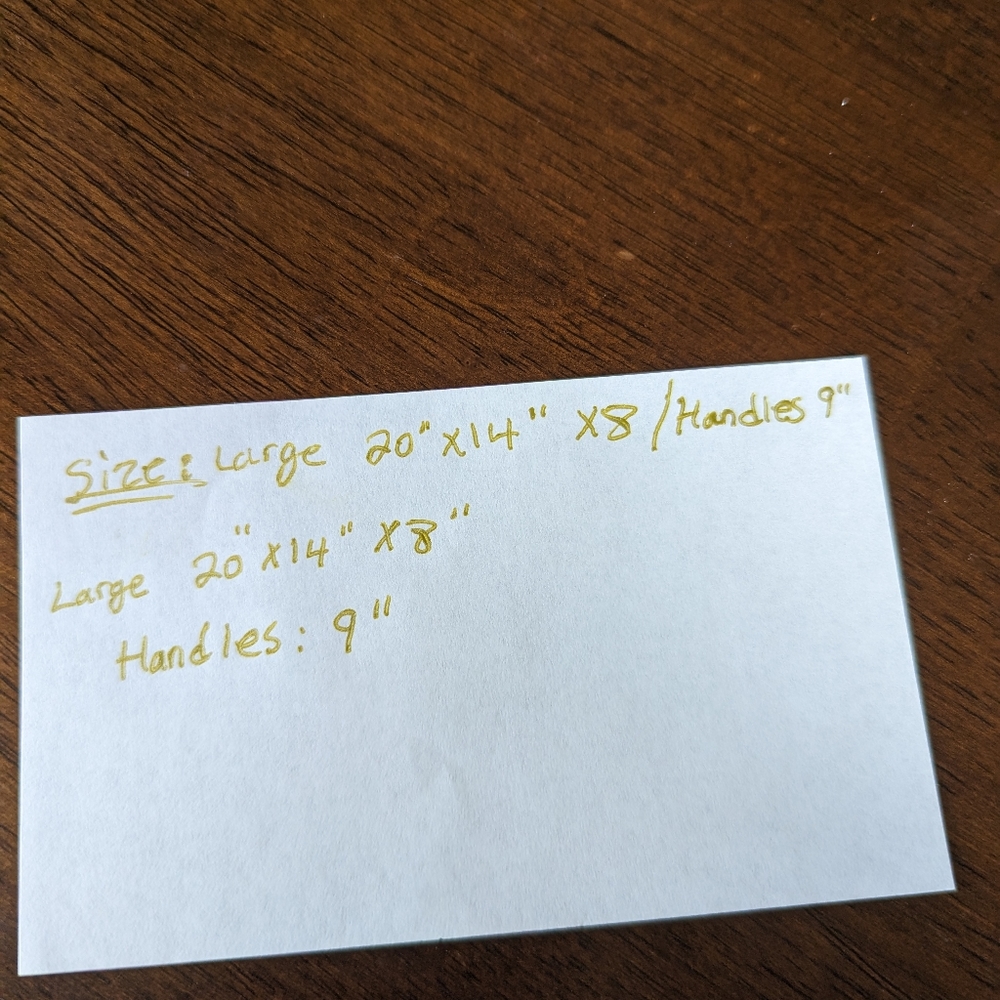 Size: Large 20" X14" X8 / Handles 9"
Large 20" X14" X8"
Handles: 9"